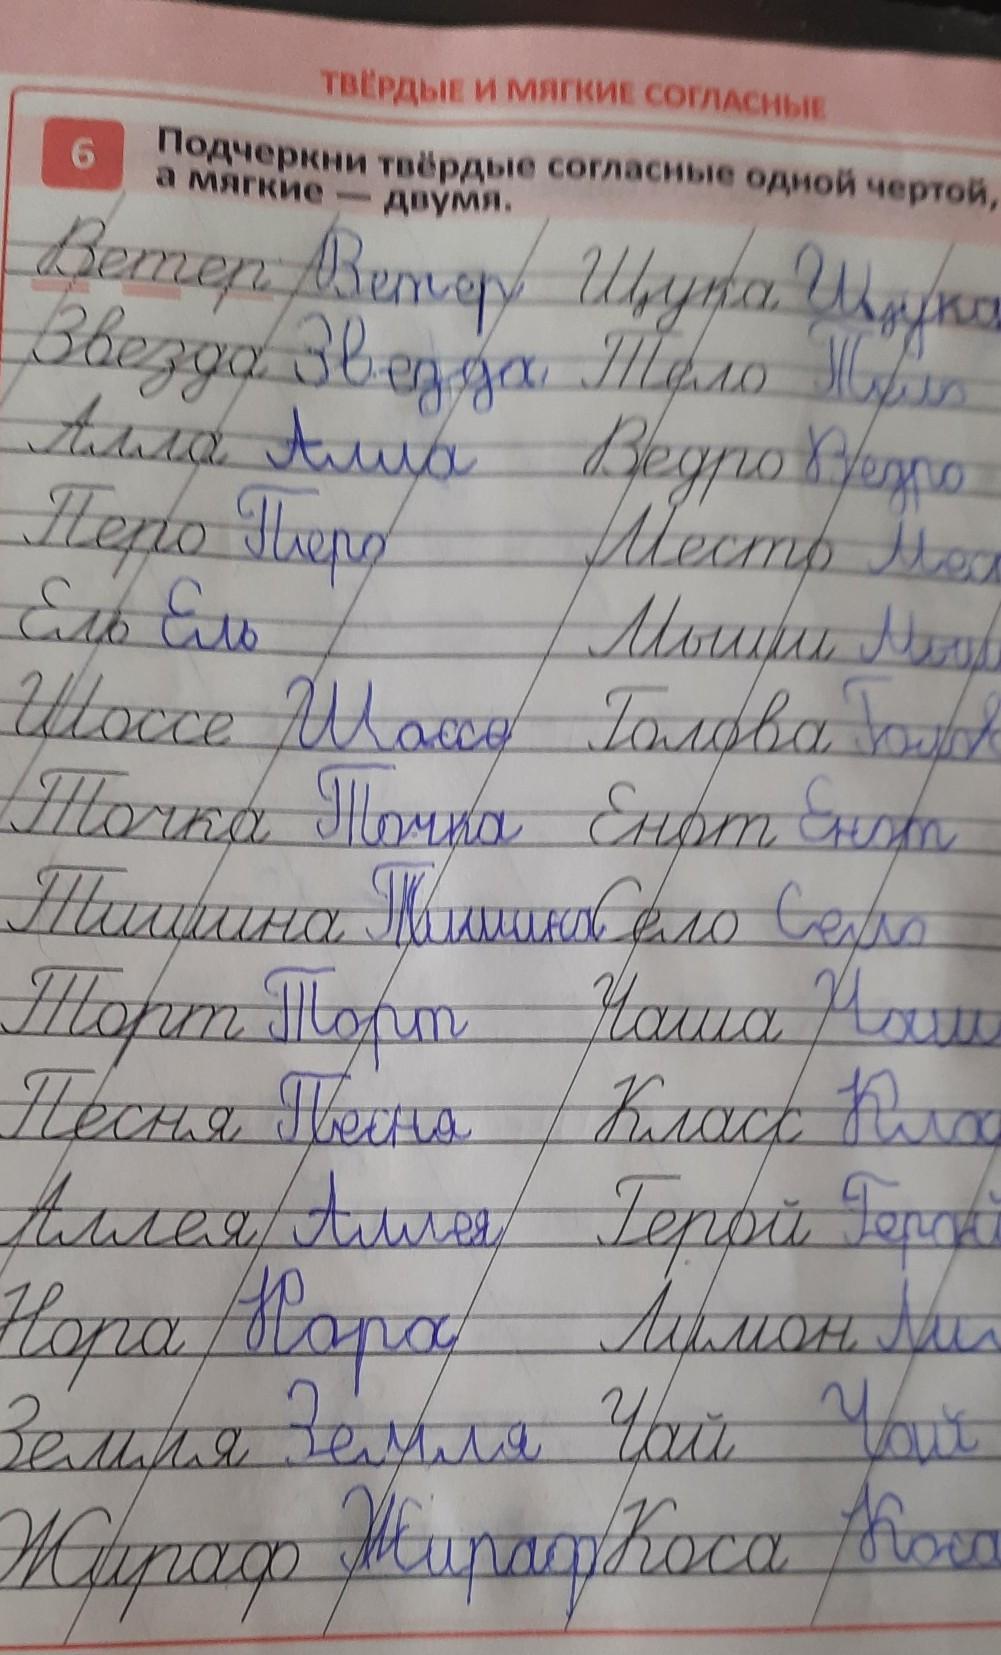 ТВЁРДЫЕ И МЯГКИЕ СОГЛАСНЫЕ
6 Подчеркни твёрдые согласные одной чертой,
а мягкие — двумя.
Ветер Ветер Щука Щука
Звезда Звезда Тело
Алла Алла Ведро Ведро
Перо Перо Место Мес
Ель Ель Мыши Мыш
Шоссе Шоссе Голова Голов
Точка Точка Енот Енот
Тишина Тишина Село Село
Торт Торт Чаша Чаш
Песня Песня Класс Клас
Аллея Аллея Герой Герой
Нора Нора Лимон Лим
Земля Земля Чай Чай
Жираф Жираф Коса Коса